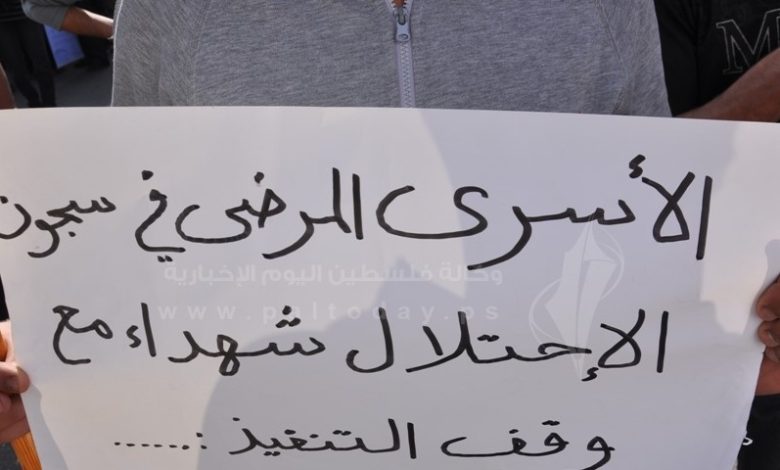 الأسرى المرضى في سجون
وكالة فلسطين اليوم الإخبارية
www.paltoday.ps
الإحتلال شهداء مع
وقف التنفيذ : ......
M